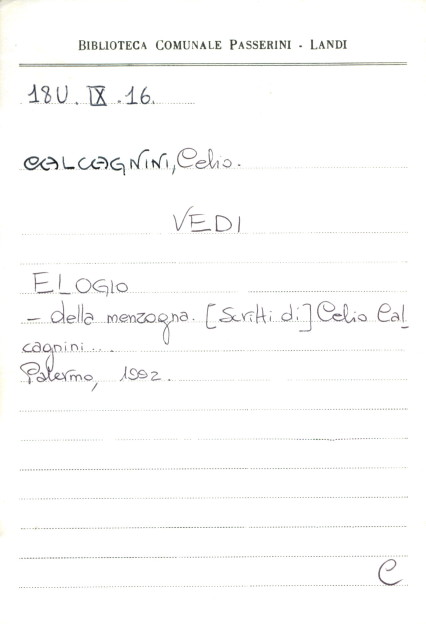 BIBLIOTECA COMUNALE PASSERINI - LANDI
18U. IX .16.
CALCAGNINI, Celio.
VEDI
ELOGIO
- della menzogna. [Scritti di] Celio Cal_
cagnini...
Palermo, 1992.
C